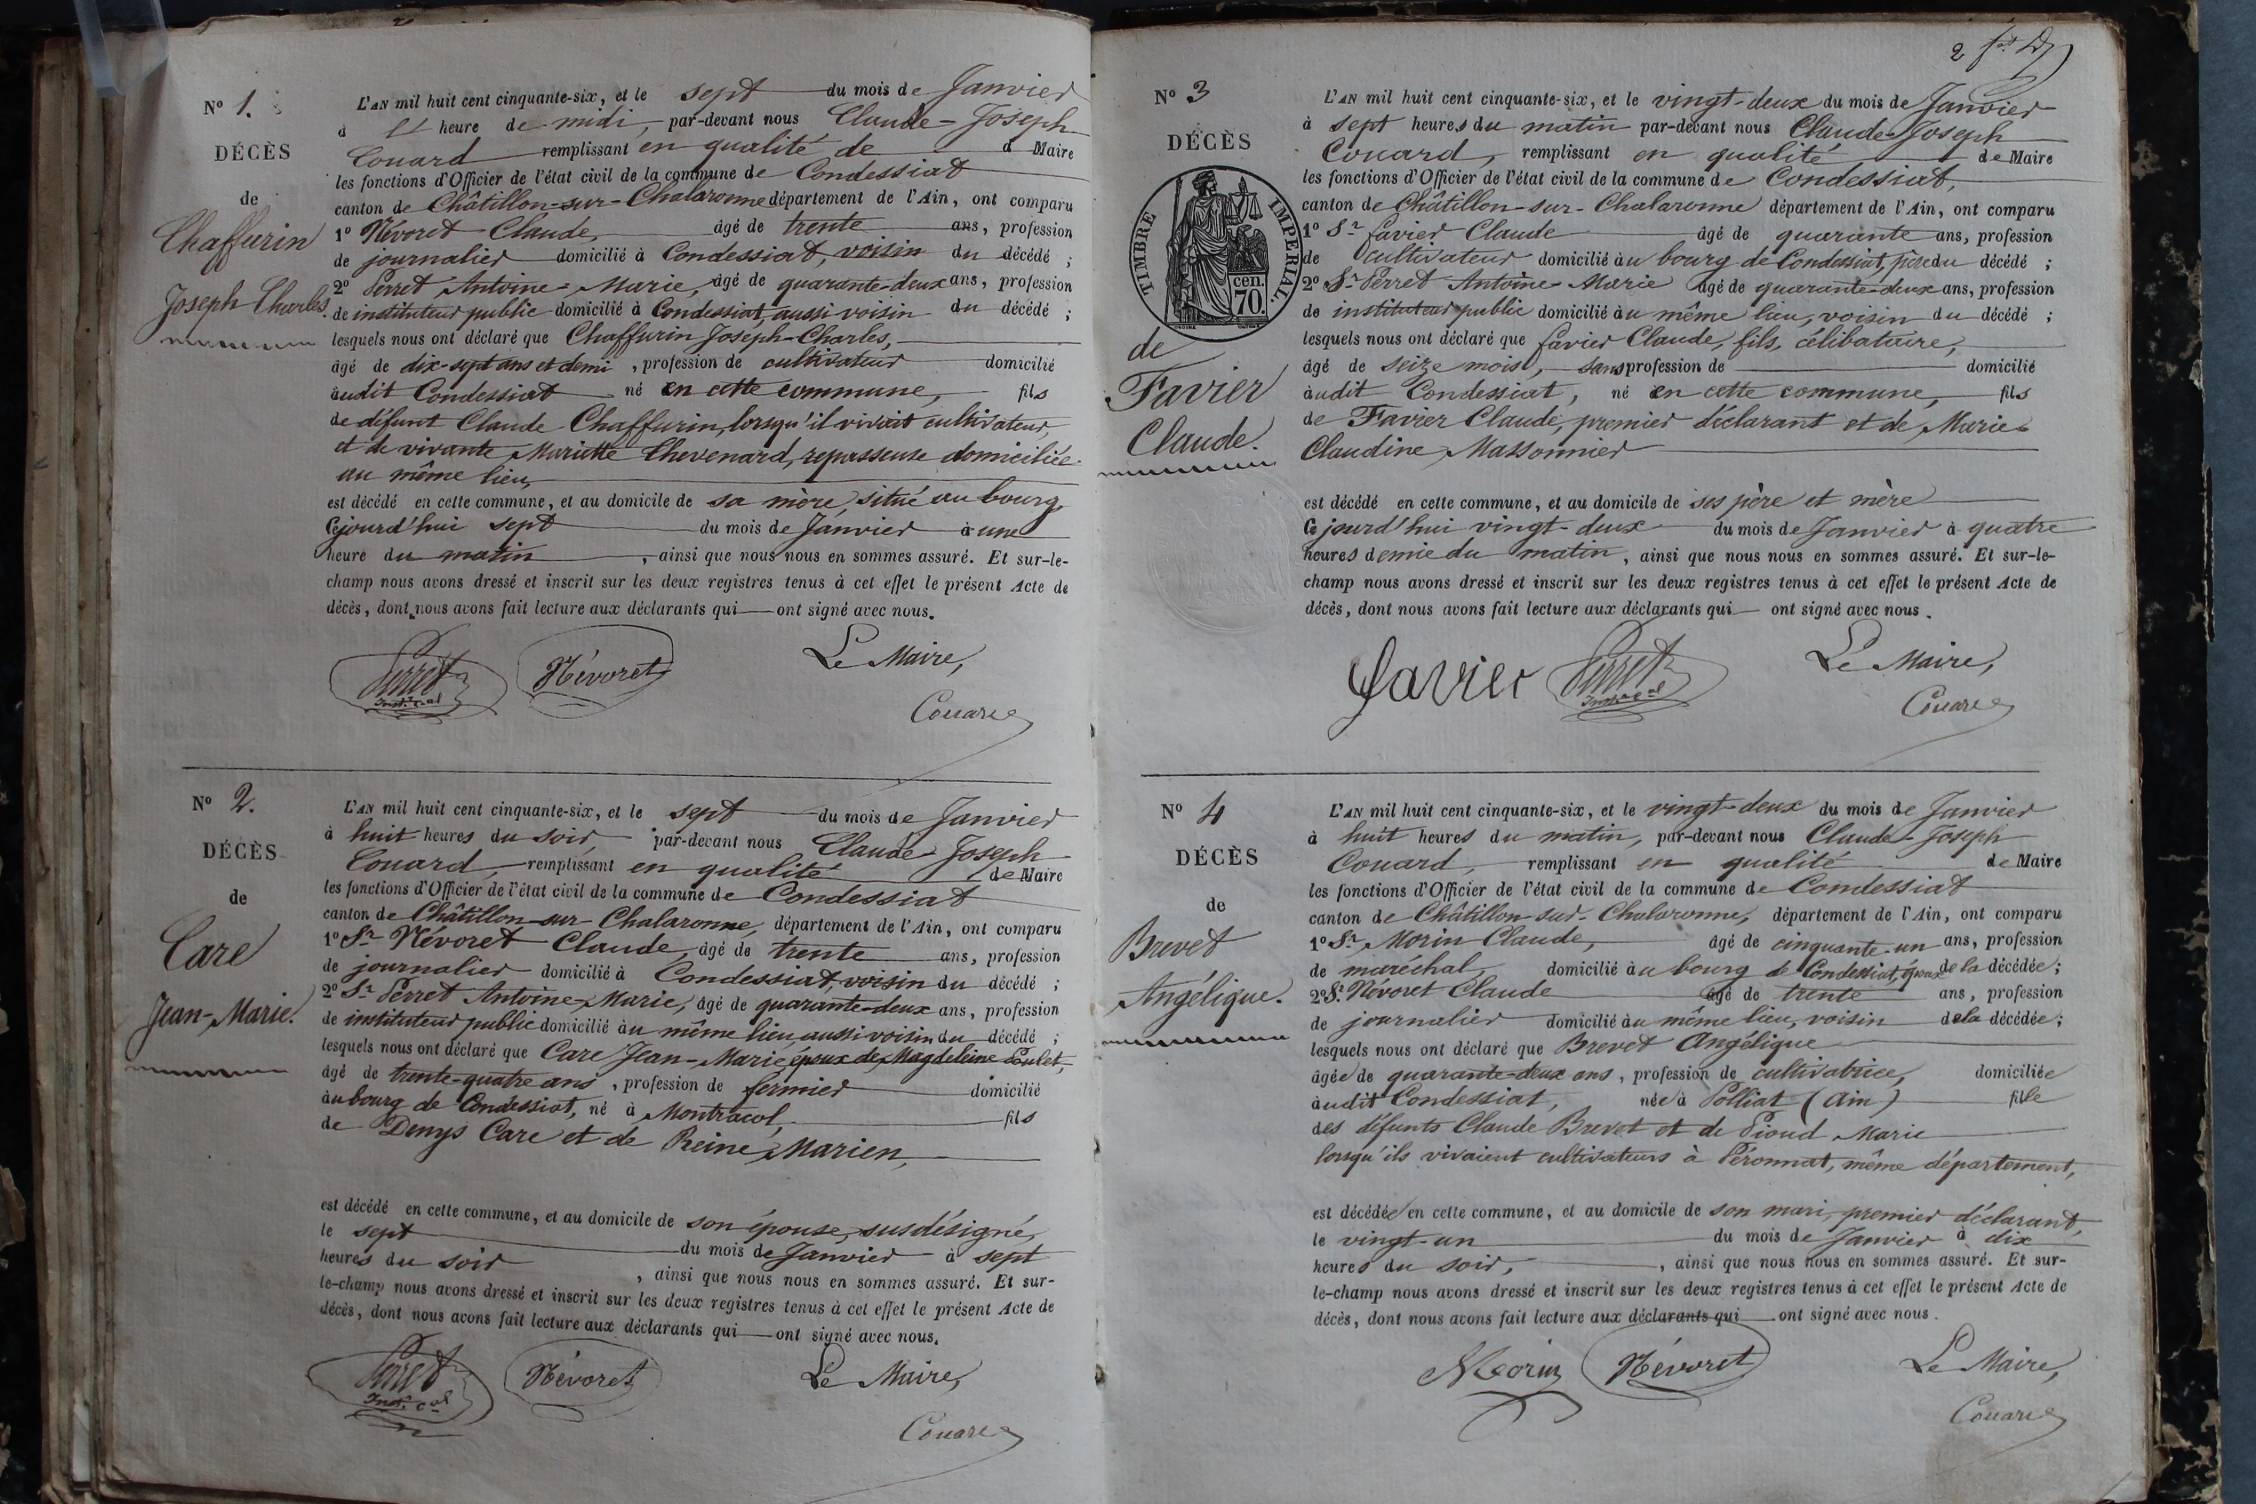 N° 1.
DÉCÈS
de
Chaffurin
Joseph Charles.
L'AN mil huit cent cinquante-six, et le sept du mois de Janvier
à heure de midi, par-devant nous Claude-Joseph
Couard remplissant en qualité de Maire
les fonctions d'Officier de l'état civil de la commune de Condessiat
canton de Châtillon-sur-Chalaronne département de l'Ain, ont comparu
1° Névoret Claude, âgé de trente ans, profession
de journalier domicilié à Condessiat, voisin du décédé ;
2° Perret Antoine-Marie, âgé de quarante-deux ans, profession
de instituteur public domicilié à Condessiat, aussi voisin du décédé ;
lesquels nous ont déclaré que Chaffurin Joseph-Charles,
âgé de dix-sept ans et demi, profession de cultivateur domicilié
audit Condessiat né en cette commune, fils
de défunt Claude Chaffurin, lorsqu'il vivait cultivateur,
et de vivante Mariette Chevenard, repasseuse domiciliée
au même lieu,
est décédé en cette commune, et au domicile de sa mère, situé au bourg,
Cejourd'hui sept du mois de Janvier à une
heure du matin, ainsi que nous nous en sommes assuré. Et sur-le-
champ nous avons dressé et inscrit sur les deux registres tenus à cet effet le présent Acte de
décès, dont nous avons fait lecture aux déclarants qui ont signé avec nous.
Perret Névoret Le Maire,
Couard
N° 2.
DÉCÈS
de
Care
Jean-Marie.
L'AN mil huit cent cinquante-six, et le sept du mois de Janvier
à huit heures du soir, par-devant nous Claude-Joseph
Couard, remplissant en qualité de Maire
les fonctions d'Officier de l'état civil de la commune de Condessiat
canton de Châtillon-sur-Chalaronne, département de l'Ain, ont comparu
1° Sr Névoret Claude, âgé de trente ans, profession
de journalier domicilié à Condessiat, voisin du décédé ;
2° Sr Perret Antoine-Marie, âgé de quarante-deux ans, profession
de instituteur public domicilié au même lieu, aussi voisin du décédé ;
lesquels nous ont déclaré que Care Jean-Marie époux de Magdeleine Poulet,
âgé de trente-quatre ans, profession de fermier domicilié
au bourg de Condessiat, né à Montracol, fils
de Denys Care et de Reine Marien,
est décédé en cette commune, et au domicile de son épouse, susdésigné,
le sept du mois de Janvier à sept
heures du soir, ainsi que nous nous en sommes assuré. Et sur-
le-champ nous avons dressé et inscrit sur les deux registres tenus à cet effet le présent Acte de
décès, dont nous avons fait lecture aux déclarants qui ont signé avec nous.
Perret Névoret Le Maire,
Couard
2
N° 3
DÉCÈS
TIMBRE IMPERIAL.
70. cen.
de
Favier
Claude.
L'AN mil huit cent cinquante-six, et le vingt-deux du mois de Janvier
à sept heures du matin par-devant nous Claude-Joseph
Couard, remplissant en qualité de Maire
les fonctions d'Officier de l'état civil de la commune de Condessiat,
canton de Châtillon-sur-Chalaronne département de l'Ain, ont comparu
1° Sr favier Claude âgé de quarante ans, profession
de cultivateur domicilié au bourg de Condessiat, père du décédé ;
2° Sr Perret Antoine-Marie âgé de quarante-deux ans, profession
de instituteur public domicilié au même lieu, voisin du décédé ;
lesquels nous ont déclaré que favier Claude, fils, célibataire,
âgé de seize mois, sans profession de domicilié
audit Condessiat, né en cette commune, fils
de Favier Claude, premier déclarant et de Marie-
Claudine Massonnier
est décédé en cette commune, et au domicile de ses père et mère
Cejourd'hui vingt-deux du mois de Janvier à quatre
heures demie du matin, ainsi que nous nous en sommes assuré. Et sur-le-
champ nous avons dressé et inscrit sur les deux registres tenus à cet effet le présent Acte de
décès, dont nous avons fait lecture aux déclarants qui ont signé avec nous.
favier Perret Le Maire,
Couard
N° 4
DÉCÈS
de
Brevet
Angélique.
L'AN mil huit cent cinquante-six, et le vingt-deux du mois de Janvier
à huit heures du matin, par-devant nous Claude-Joseph
Couard, remplissant en qualité de Maire
les fonctions d'Officier de l'état civil de la commune de Condessiat
canton de Châtillon-sur-Chalaronne, département de l'Ain, ont comparu
1° Sr Morin Claude, âgé de cinquante-un ans, profession
de maréchal, domicilié au bourg de Condessiat, époux de la décédée ;
2° Sr Névoret Claude âgé de trente ans, profession
de journalier domicilié au même lieu, voisin de la décédée ;
lesquels nous ont déclaré que Brevet Angélique
âgée de quarante-deux ans, profession de cultivatrice, domiciliée
audit Condessiat, née à Polliat (Ain) fille
des défunts Claude Brevet et de Pioud Marie
lorsqu'ils vivaient cultivateurs à Péronnat, même département,
est décédée en cette commune, et au domicile de son mari, premier déclarant,
le vingt-un du mois de Janvier à dix
heures du soir, ainsi que nous nous en sommes assuré. Et sur-
le-champ nous avons dressé et inscrit sur les deux registres tenus à cet effet le présent Acte de
décès, dont nous avons fait lecture aux déclarants qui ont signé avec nous.
Morin Névoret Le Maire,
Couard